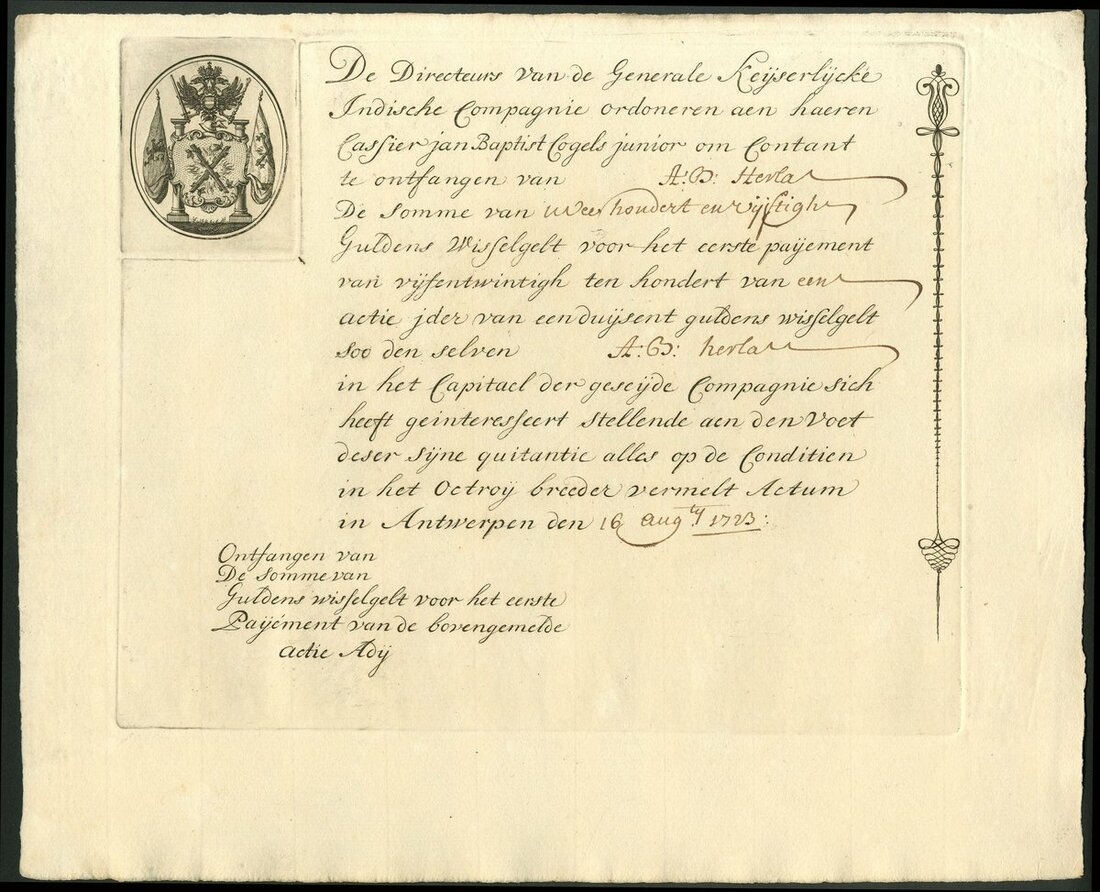 De Directeurs van de Generale Keijserlijcke
Indische Compagnie ordoneren aen haeren
Cassier jan Baptist Cogels junior om Contant
te ontfangen van A: B: Herla
De Somme van tweehondert en vijftigh
Guldens Wisselgelt voor het eerste paijement
van vijfentwintigh ten hondert van een
actie jder van een duijsent guldens wisselgelt
soo den selven A: B: herla
in het Capitael der geseijde Compagnie sich
heeft geinteresseert stellende aen den Voet
deser sijne quitantie alles op de Conditien
in het Octroij breeder vermelt Actum
in Antwerpen den 16 augty 1723:
Ontfangen van
De Somme van
Guldens wisselgelt voor het eerste
Paijement van de bovengemelde
actie Adij